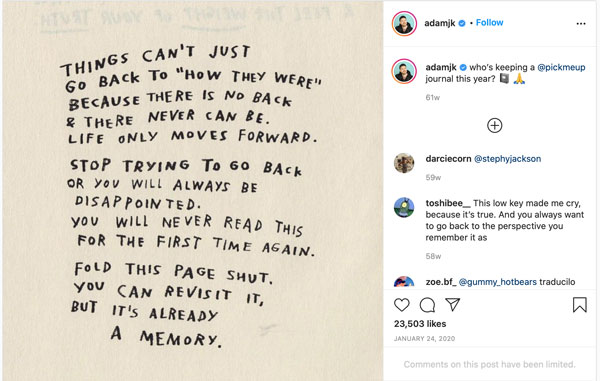 & FEEL THE WEIGHT OF YOUR TRUTH.
THINGS CAN'T JUST
GO BACK TO "HOW THEY WERE"
BECAUSE THERE IS NO BACK
& THERE NEVER CAN BE.
LIFE ONLY MOVES FORWARD.
STOP TRYING TO GO BACK
OR YOU WILL ALWAYS BE
DISAPPOINTED.
YOU WILL NEVER READ THIS
FOR THE FIRST TIME AGAIN.
FOLD THIS PAGE SHUT.
YOU CAN REVISIT IT,
BUT IT'S ALREADY
A MEMORY.
adamjk • Follow
adamjk who's keeping a @pickmeup
journal this year? 📓 🙏
61w
darciecorn @stephyjackson
59w
toshibee__ This low key made me cry,
because it's true. And you always want
to go back to the perspective you
remember it as
58w
zoe.bf_ @gummy_hotbears traducilo
23,503 likes
JANUARY 24, 2020
Comments on this post have been limited.